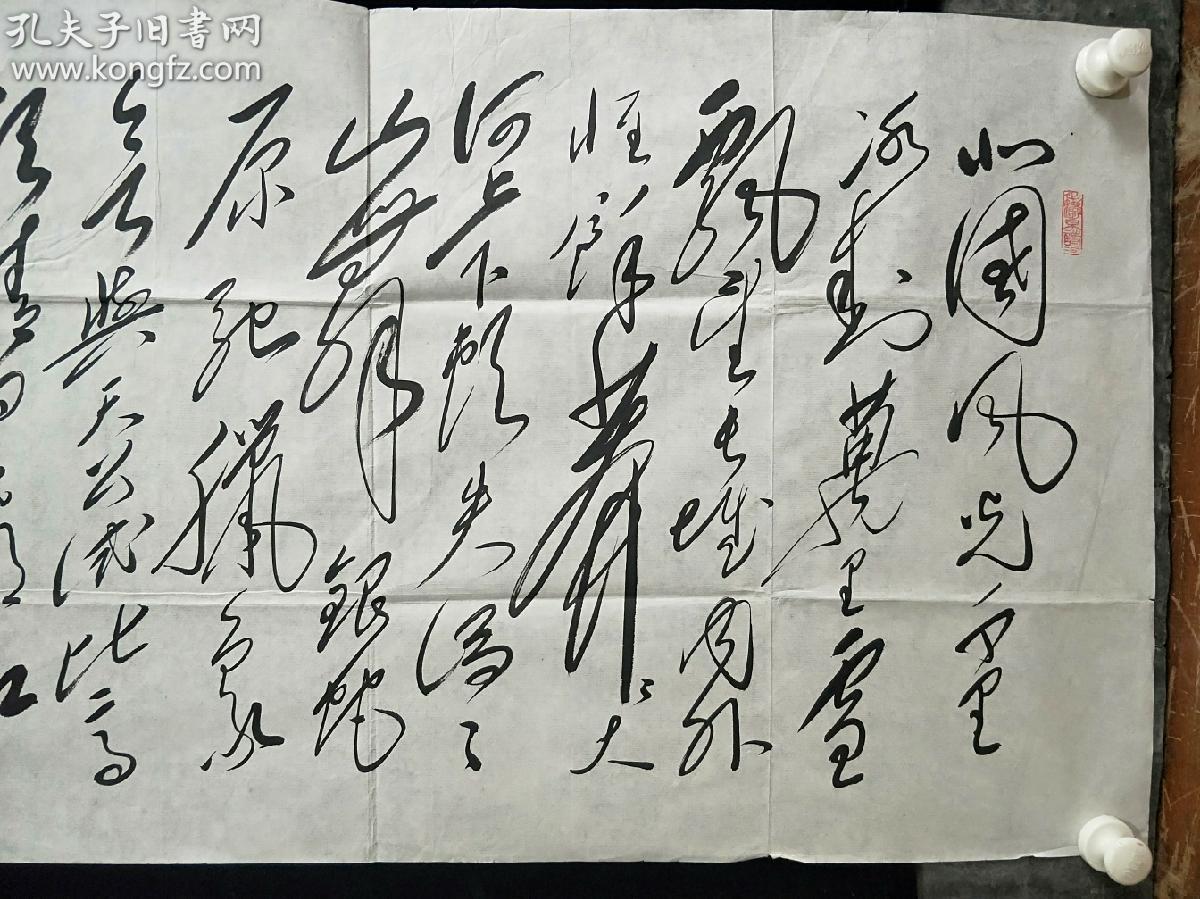 孔夫子旧書网
www.kongfz.com
北國風光千里
冰封萬里雪
飄望長城内外
惟餘莽々大
河上下頓失滔々
山舞銀蛇
原馳臘象
欲與天公試比高
須晴日